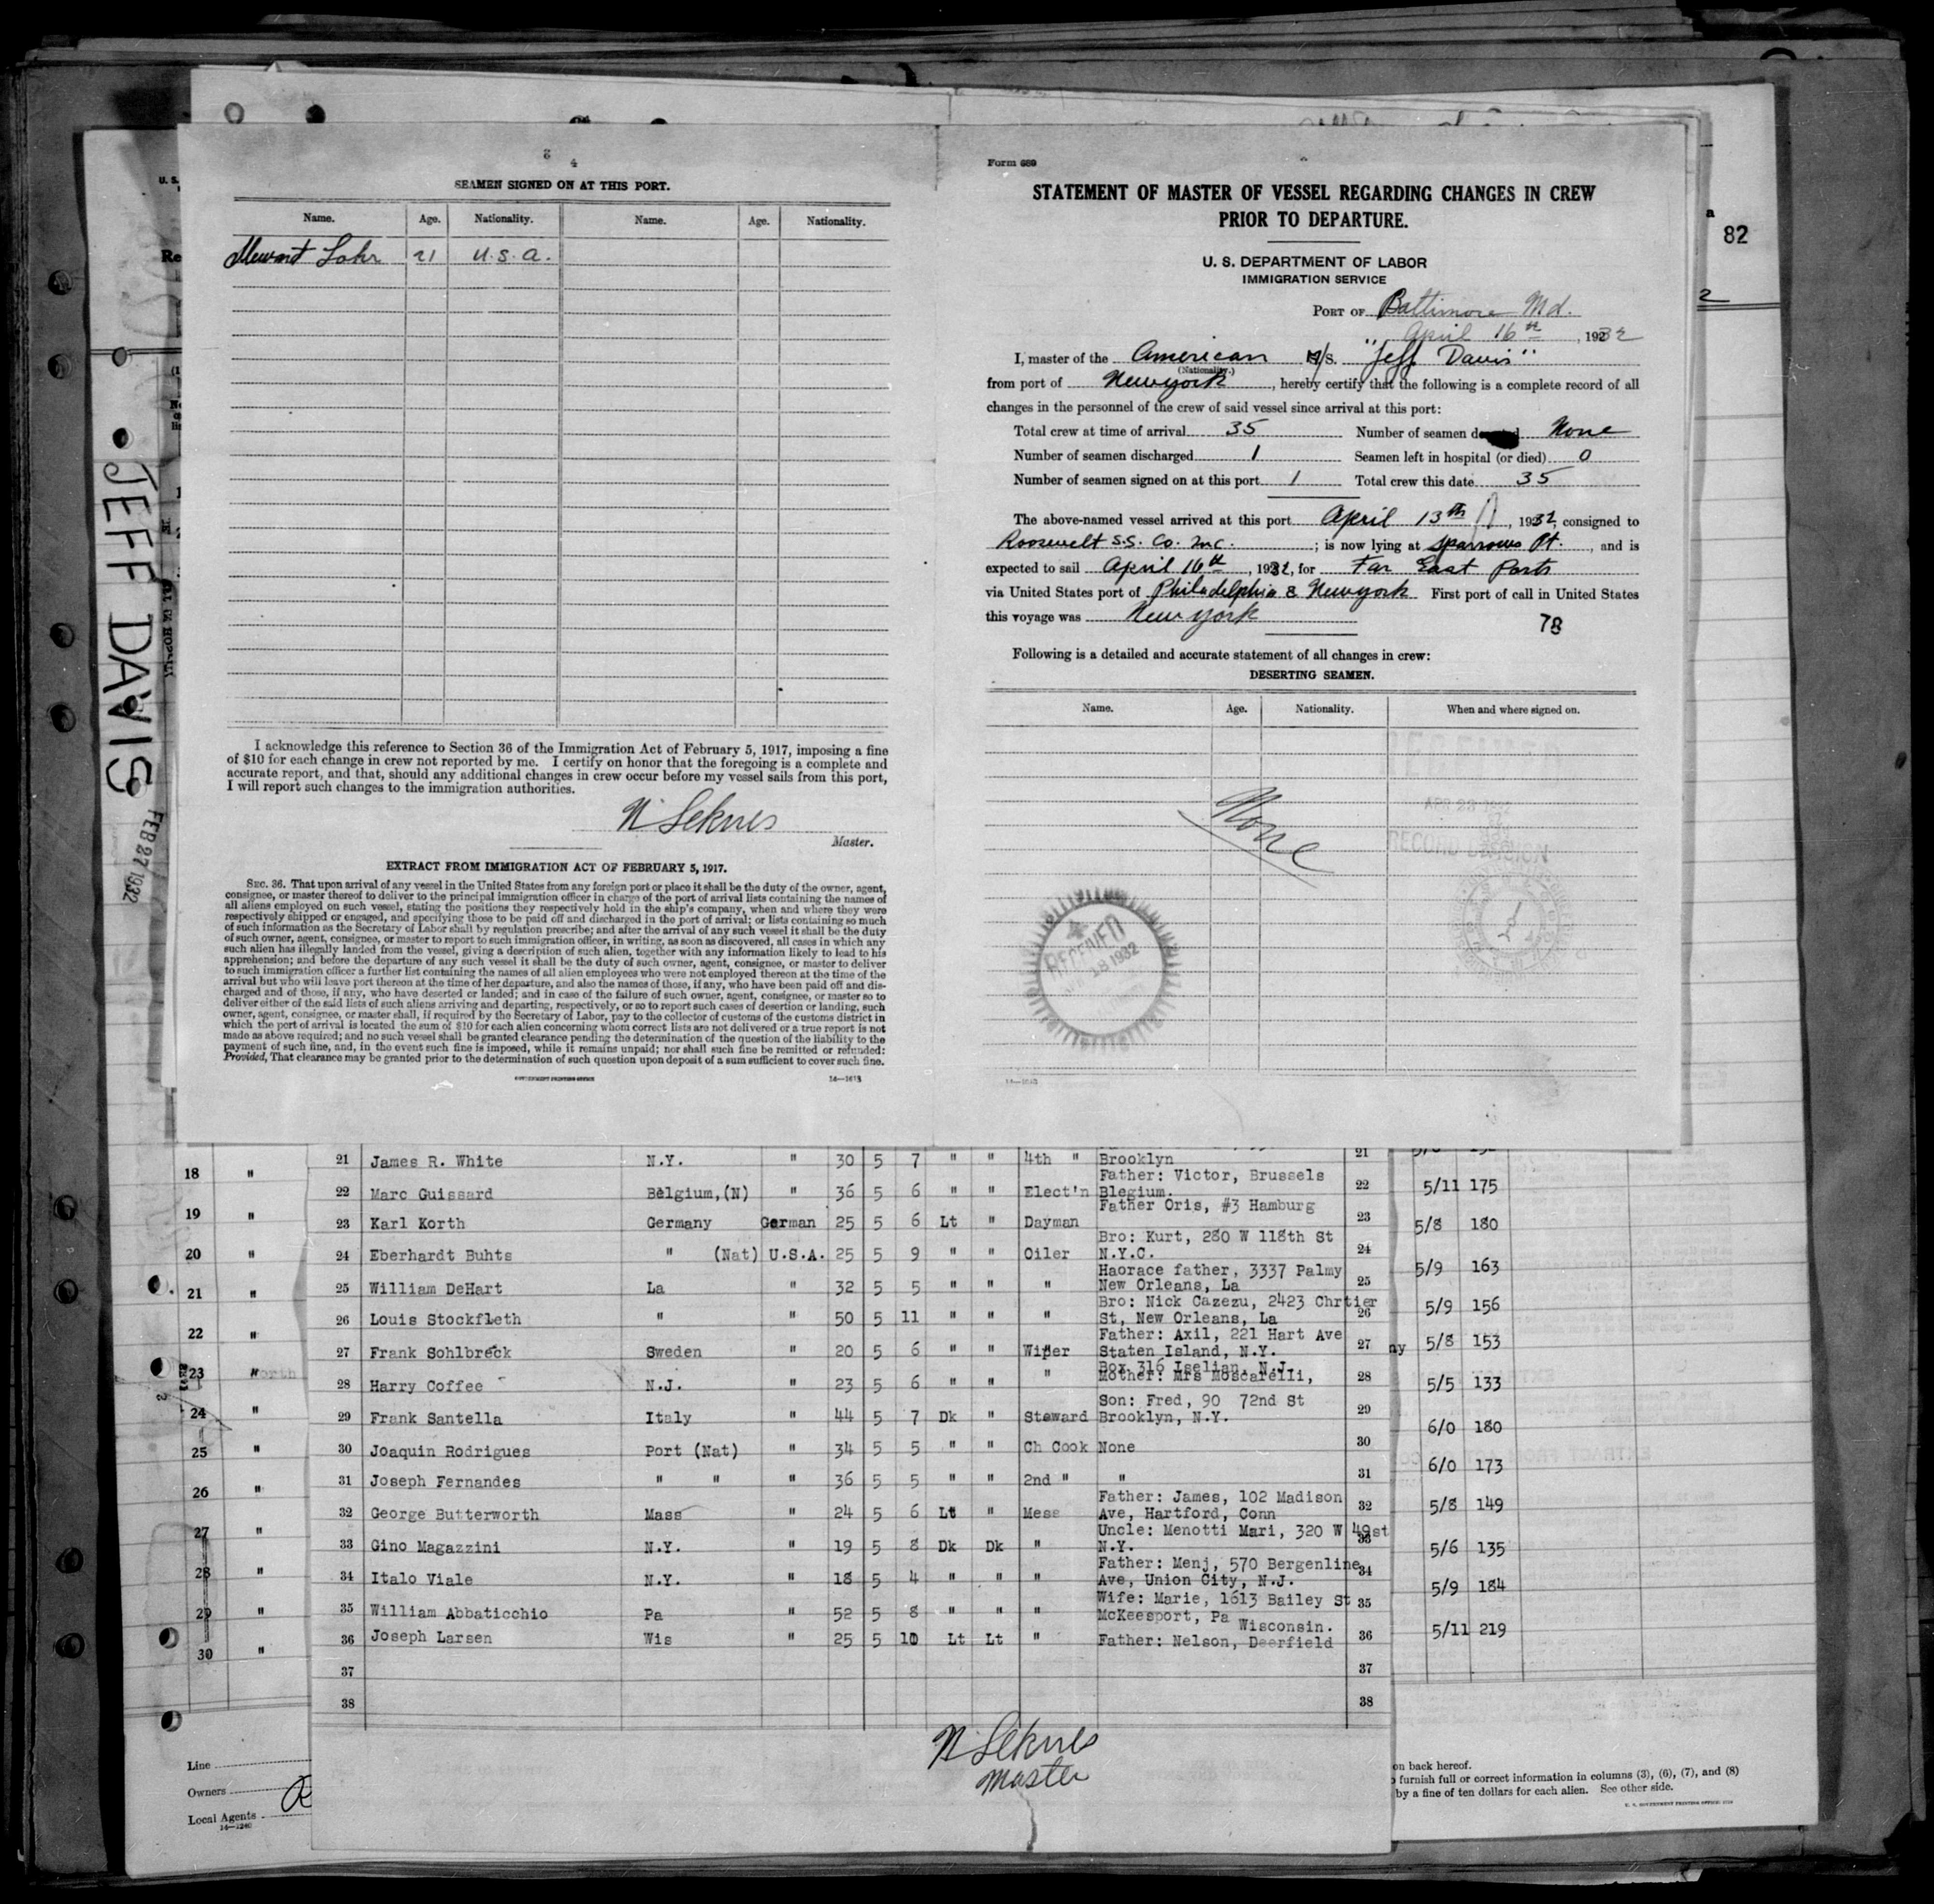 3 4
SEAMEN SIGNED ON AT THIS PORT.
Name. Age. Nationality. Name. Age. Nationality.
Lohr 21 U.S.A.
I acknowledge this reference to Section 36 of the Immigration Act of February 5, 1917, imposing a fine
of $10 for each change in crew not reported by me. I certify on honor that the foregoing is a complete and
accurate report, and that, should any additional changes in crew occur before my vessel sails from this port,
I will report such changes to the immigration authorities.
N Seknes
Master.
EXTRACT FROM IMMIGRATION ACT OF FEBRUARY 5, 1917.
SEC. 36. That upon arrival of any vessel in the United States from any foreign port or place it shall be the duty of the owner, agent,
consignee, or master thereof to deliver to the principal immigration officer in charge of the port of arrival lists containing the names of
all aliens employed on such vessel, stating the positions they respectively hold in the ship's company, when and where they were
respectively shipped or engaged, and specifying those to be paid off and discharged in the port of arrival; or lists containing so much
of such information as the Secretary of Labor shall by regulation prescribe; and after the arrival of any such vessel it shall be the duty
of such owner, agent, consignee, or master to report to such immigration officer, in writing, as soon as discovered, all cases in which any
such alien has illegally landed from the vessel, giving a description of such alien, together with any information likely to lead to his
apprehension; and before the departure of any such vessel it shall be the duty of such owner, agent, consignee, or master to deliver
to such immigration officer a further list containing the names of all alien employees who were not employed thereon at the time of the
arrival but who will leave port thereon at the time of her departure, and also the names of those, if any, who have been paid off and dis-
charged and of those, if any, who have deserted or landed; and in case of the failure of such owner, agent, consignee, or master so to
deliver either of the said lists of such aliens arriving and departing, respectively, or so to report such cases of desertion or landing, such
owner, agent, consignee, or master shall, if required by the Secretary of Labor, pay to the collector of customs of the customs district in
which the port of arrival is located the sum of $10 for each alien concerning whom correct lists are not delivered or a true report is not
made as above required; and no such vessel shall be granted clearance pending the determination of the question of the liability to the
payment of such fine, and, in the event such fine is imposed, while it remains unpaid; nor shall such fine be remitted or refunded:
Provided, That clearance may be granted prior to the determination of such question upon deposit of a sum sufficient to cover such fine.
GOVERNMENT PRINTING OFFICE 14—1613
Form 689
STATEMENT OF MASTER OF VESSEL REGARDING CHANGES IN CREW
PRIOR TO DEPARTURE.
U. S. DEPARTMENT OF LABOR
IMMIGRATION SERVICE
PORT OF Baltimore Md.
April 16th, 1932
I, master of the American M/S. "Jeff Davis"
(Nationality.)
from port of Newyork, hereby certify that the following is a complete record of all
changes in the personnel of the crew of said vessel since arrival at this port:
Total crew at time of arrival 35 Number of seamen None
Number of seamen discharged 1 Seamen left in hospital (or died) 0
Number of seamen signed on at this port 1 Total crew this date 35
The above-named vessel arrived at this port April 13th, 1932, consigned to
Roosevelt S.S. Co. Inc.; is now lying at Sparrows Pt., and is
expected to sail April 16th, 1932, for Far East Ports
via United States port of Philadelphia & Newyork First port of call in United States
this voyage was New York
78
Following is a detailed and accurate statement of all changes in crew:
DESERTING SEAMEN.
Name. Age. Nationality. When and where signed on.
None
RECORD DIVISION
RECEIVED
18 1932
82
2
JEFF DAVIS
FEB 27 1932
21 James R. White N.Y. " 30 5 7 " " 4th " Brooklyn 21
22 Marc Guissard Belgium,(N) " 36 5 6 " " Elect'n Father: Victor, Brussels Blegium. 22
23 Karl Korth Germany German 25 5 6 Lt " Dayman Father Oris, #3 Hamburg 23
24 Eberhardt Buhts " (Nat) U.S.A. 25 5 9 " " Oiler Bro: Kurt, 280 W 118th St N.Y.C. 24
25 William DeHart La " 32 5 5 " " " Haorace father, 3337 Palmy New Orleans, La 25
26 Louis Stockfleth " " 50 5 11 " " " Bro: Nick Cazezu, 2423 Chrtier St, New Orleans, La 26
27 Frank Sohlbreck Sweden " 20 5 6 " " Wiper Father: Axil, 221 Hart Ave Staten Island, N.Y. 27
28 Harry Coffee N.J. " 23 5 6 " " " Box 316 Iselian, N.J. Mother: Mrs Moscarelli, 28
29 Frank Santella Italy " 44 5 7 Dk " Steward Son: Fred, 90 72nd St Brooklyn, N.Y. 29
30 Joaquin Rodrigues Port (Nat) " 34 5 5 " " Ch Cook None 30
31 Joseph Fernandes " " " 36 5 5 " " 2nd " " 31
32 George Butterworth Mass " 24 5 6 Lt " Mess Father: James, 102 Madison Ave, Hartford, Conn 32
33 Gino Magazzini N.Y. " 19 5 8 Dk Dk " Uncle: Menotti Mari, 320 W 49st N.Y. 33
34 Italo Viale N.Y. " 18 5 4 " " " Father: Menj, 570 Bergenline Ave, Union City, N.J. 34
35 William Abbaticchio Pa " 52 5 8 " " " Wife: Marie, 1613 Bailey St McKeesport, Pa 35
36 Joseph Larsen Wis " 25 5 10 Lt Lt " Father: Nelson, Deerfield Wisconsin. 36
37 37
38 38
N Seknes
Master
18 "
19 "
20 "
21 "
22 "
23 "
24 "
25 "
26 "
27 "
28 "
29 "
30 "
5/11 175
5/8 180
5/9 163
5/9 156
ny 5/8 153
5/5 133
6/0 180
6/0 173
5/8 149
5/6 135
5/9 184
5/11 219
Line
Owners
Local Agents
14—1240
on back hereof.
furnish full or correct information in columns (3), (6), (7), and (8)
by a fine of ten dollars for each alien. See other side.
U. S. GOVERNMENT PRINTING OFFICE